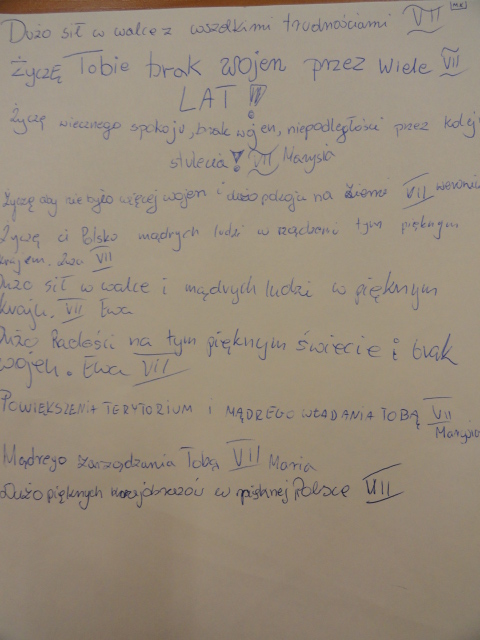 Dużo sił w walce z wszelkimi trudnościami VII MK
życzę Tobie brak wojen przez wiele VII
LAT!!!
życzę wiecznego spokoju, brak wojen, niepodległości przez kolej
stulecia! VII Marysia
życzę aby nie było więcej wojen i dużo pokoju na Ziemi VII
Życzę ci Polsko mądrych ludzi w rządzeniu tym pięknym
krajem. VII
Dużo sił w walce i mądrych ludzi w pięknym
kraju. VII Ewa
Dużo Radości na tym pięknym świecie i brak
wojen. Ewa VII
POWIĘKSZENIA TERYTORIUM I MĄDREGO WŁADANIA TOBĄ VII
Mądrego zarządzania Tobą VII Maria
Dużo pięknych krajobrazów w pięknej Polsce VII